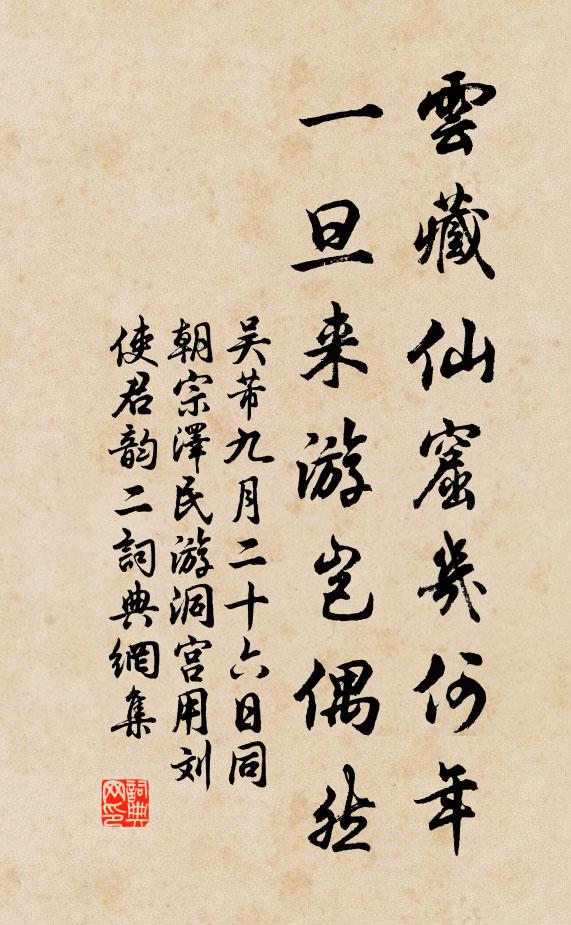 雲藏仙窟幾何年
一旦来游岂偶然
吴芾九月二十六日同
朝宗澤民游洞宫用刘
使君韵二詞典網集
詞典网印